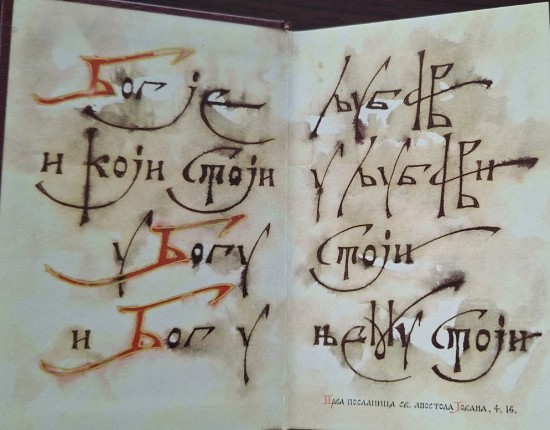 Бог је љубав
и који стоји у љубави
у Богу стоји
и Бог у њему стоји
Прва посланица св. апостола Јована, 4, 16.